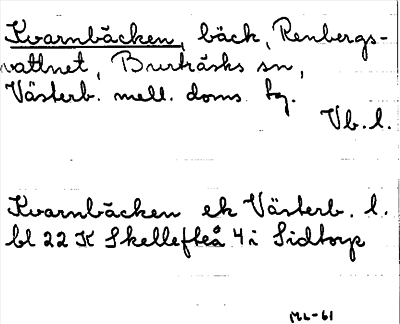 Kvarnbäcken, bäck, Renbergs-
vattnet, Burträsks sn,
Västerb. mell. doms. tg.
Vb. l.
Kvarnbäcken ek Västerb. l.
bl 22 K Skellefteå 4 i Sidtorp
ML-61